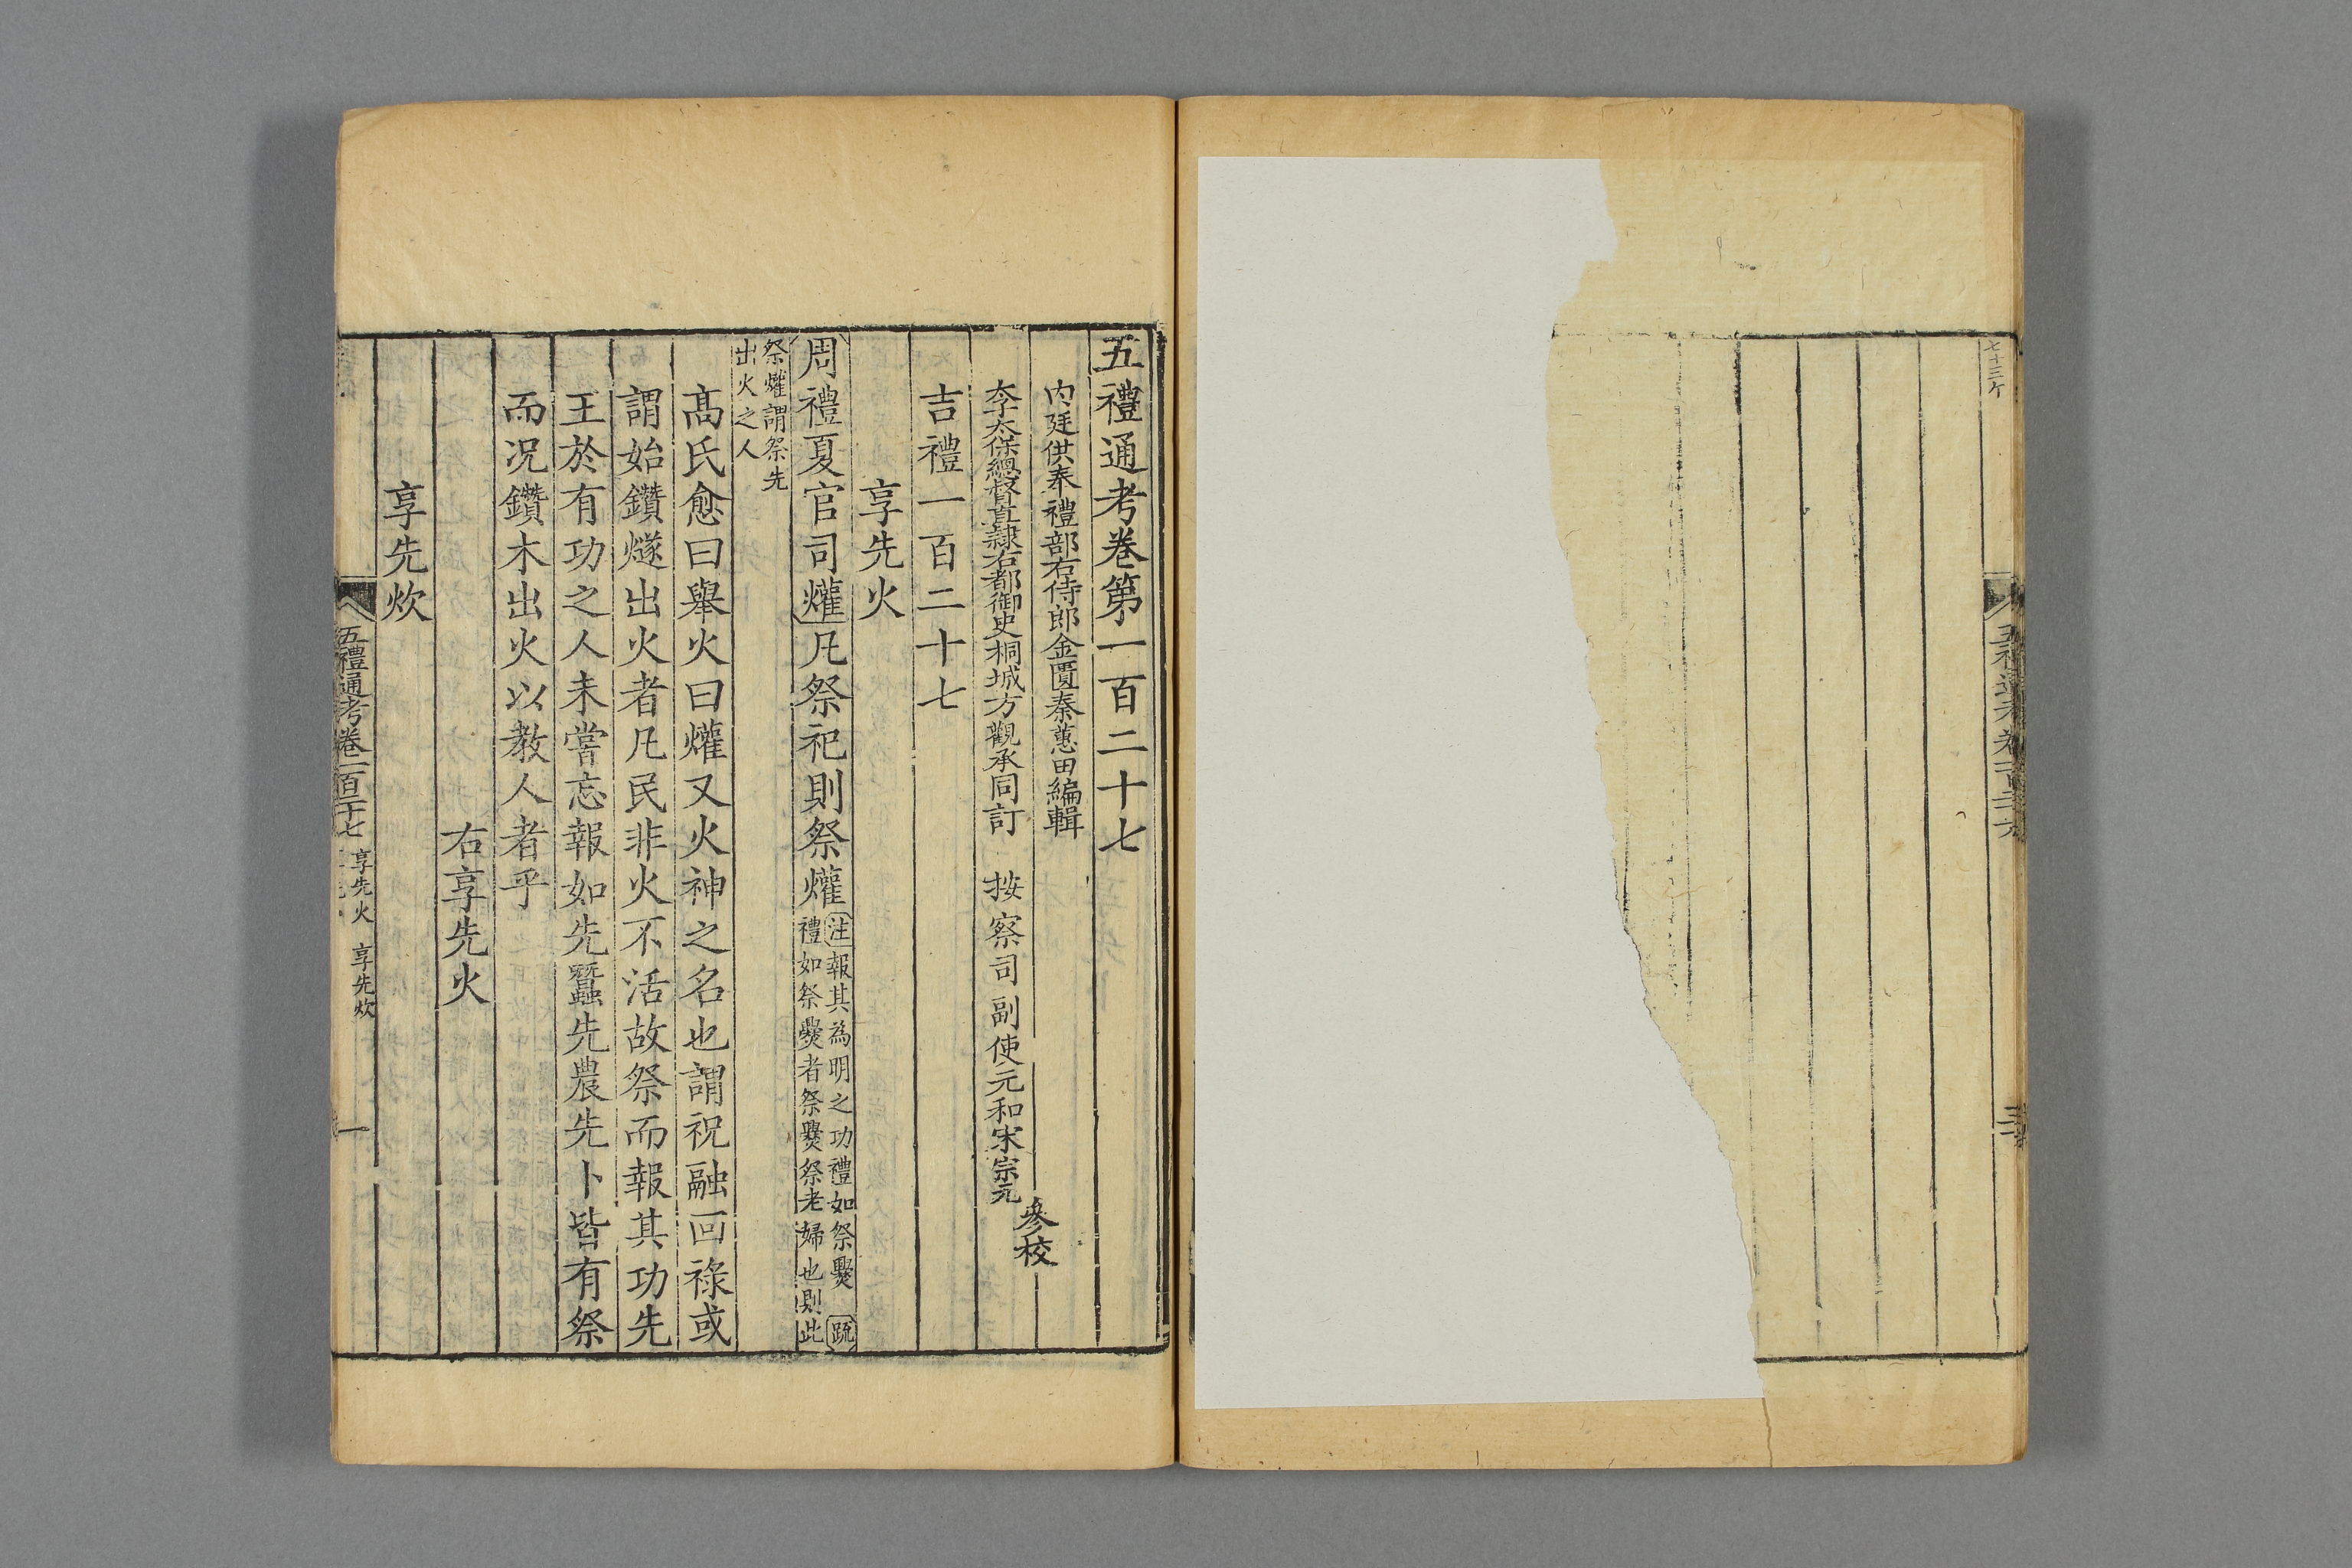 五禮通考卷第一百二十七
內廷供奉禮部右侍郎金匱秦蕙田編輯
太子太保總督直隸右都御史桐城方觀承同訂
按察司副使元和宋宗元
參校
吉禮一百二十七
享先火
周禮夏官司爟凡祭祀則祭爟注報其為明之功禮如祭爨疏
禮如祭爨者祭爨祭老婦也則此
祭爟謂祭先
出火之人
髙氏愈曰舉火曰爟又火神之名也謂祝融回祿或
謂始鑽燧出火者凡民非火不活故祭而報其功先
王於有功之人未嘗忘報如先蠶先農先卜皆有祭
而況鑽木出火以教人者乎
右享先火
享先炊
五禮通考卷一百二十七 享先火 享先炊 一